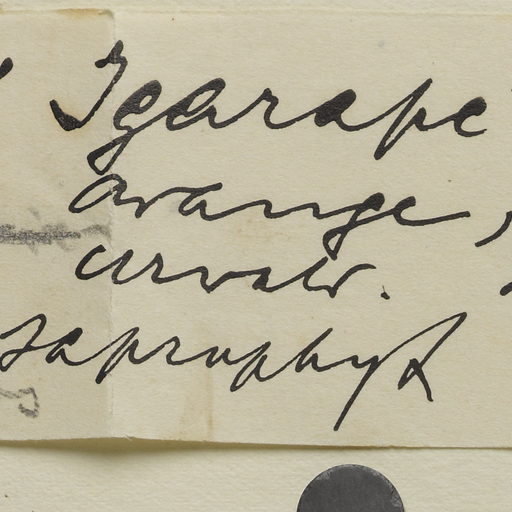 Igarapé
orange,
urwald.
saprophyt